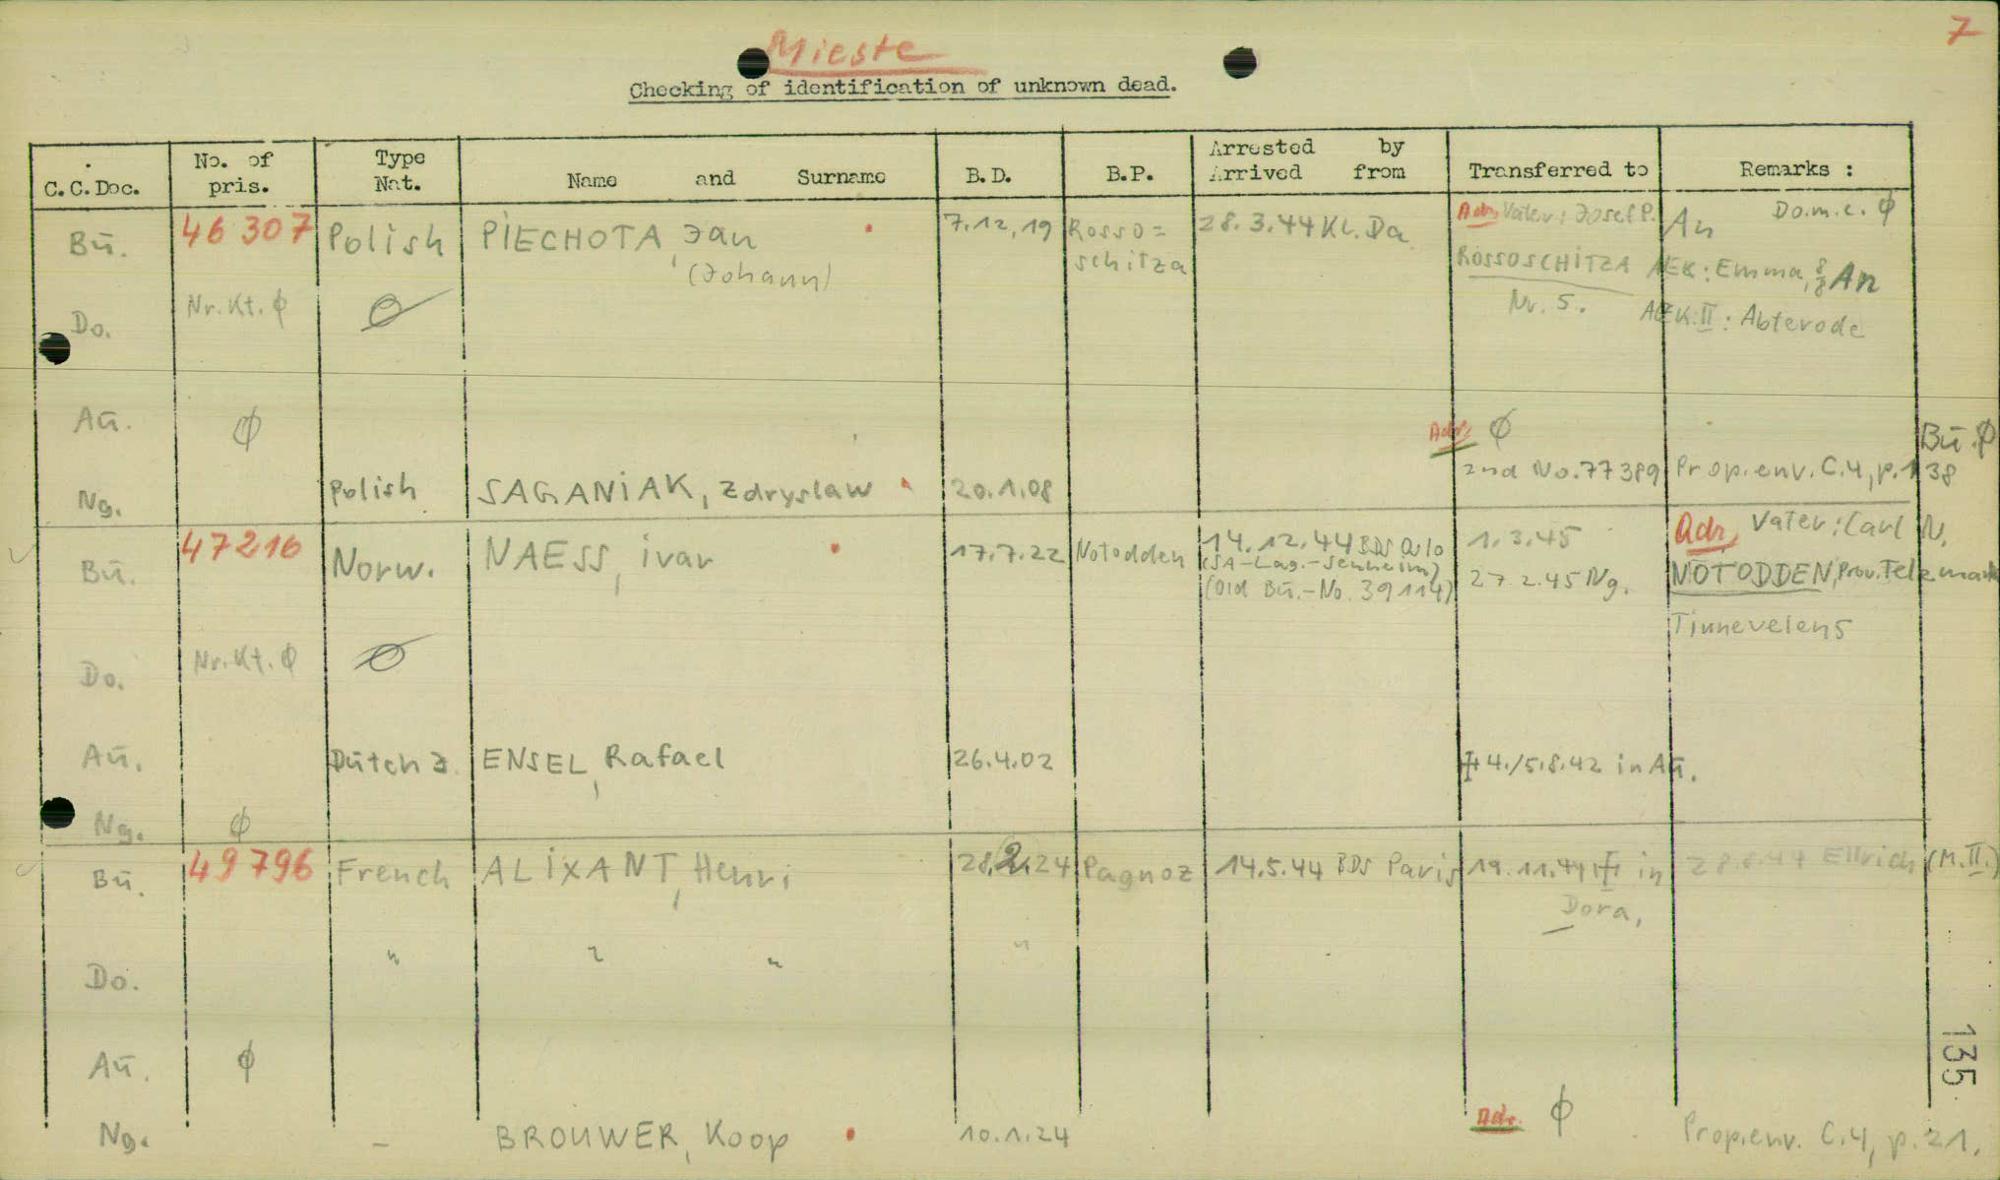 7
Mieste
Checking of identification of unknown dead.
C.C.Doc. No. of pris. Type Nat. Name and Surname B.D. B.P. Arrested by Arrived from Transferred to Remarks :
Bu. 46307 Polish PIECHOTA, Jan (Johann) 7.12.19 Rosso= schitza 28.3.44 KL. Da Adr. Vater: Josef P. ROSSOSCHITZA Nr. 5. An Do.m.c. ∅
AEK: Emma, An
AEK.II: Abterode
Do. Nr.Kt. ∅ ∅
Au. ∅
Adr. ∅ Bu. ∅
Ng. Polish SAGANIAK, Zdryslaw 20.1.08 2nd No.77389 Prop.env. C.4, p.138
Bu. 47216 Norw. NAESS, ivar 17.7.22 Notodden 14.12.44 BDS Oslo (SA-Lag.-Sennheim) (Old Bu.-No. 39114) 1.3.45 27.2.45 Ng. Adr. Vater: Carl N. NOTODDEN, Prov. Telemark
Tinnevelen5
Do. Nr.Kt. ∅ ∅
Au. Dutch J. ENSEL, Rafael 26.4.02 4./5.8.42 in Au.
Ng. ∅
Bu. 49796 French ALIXANT, Henri 28.2.24 Pagnoz 14.5.44 BDS Paris 19.11.44 in Dora, 28.6.44 Ellrich (M.II.)
Do. " " " "
Au. ∅
135
Ng. - BROUWER, Koop 10.1.24 Adr. ∅ Prop.env. C.4, p.21.